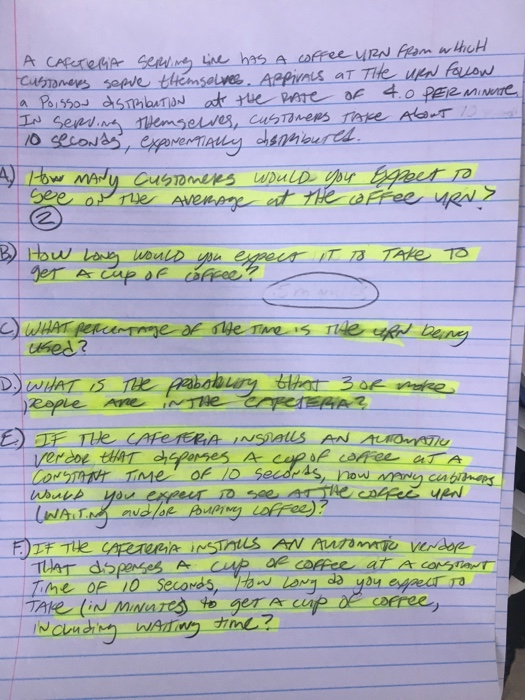 A CAFETERIA Serving line has A coffee URN from which
customers serve themselves. ARRIVALS AT THE URN follow
a Poisson distribution at the RATE of 4.0 PER MINUTE
In serving themselves, customers TAKE About
10 seconds, exponentially distributed.
A) How MANY customers would your Expect TO
See on THE AVERAGE at the coffee URN?
2
B) How Long would you expect IT TO TAKE TO
get A cup OF coffee?
C) WHAT percentage of the Time is THE URN being
used?
D.) WHAT is The probability that 3 or more
people are in THE CAFETERIA?
E) IF THE CAFETERIA INSTALLS AN AUTOMATIC
vendor THAT dispenses A cup of coffee at A
CONSTANT Time of 10 seconds, how many customers
would you expect to see at the coffee URN
(WAITING and/or Pouring coffee)?
F.) IF THE CAFETERIA INSTALLS AN AUTOMATIC vendor
THAT dispenses A cup of coffee at A constant
Time of 10 seconds, How Long do you expect to
TAKE (in minutes) to get A cup of coffee,
including WAITING time?